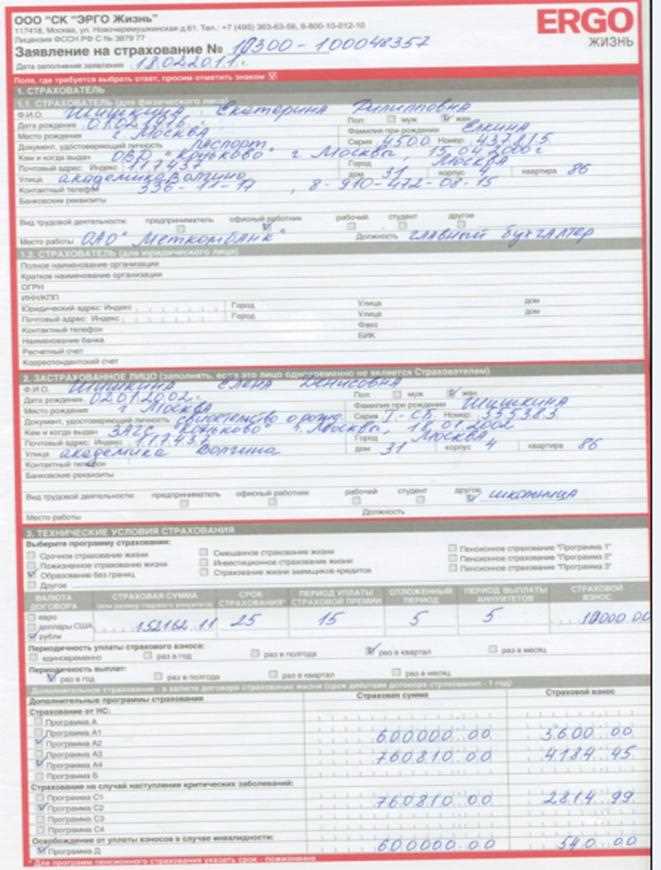 ООО "СК "ЭРГО Жизнь"
117418, Москва, ул. Новочеремушкинская д.61, Тел.: +7 (495) 363-63-56, 8-800-10-012-10
Лицензия ФССН РФ С № 3879 77
ERGO
ЖИЗНЬ
Заявление на страхование № 10300-100048357
Дата заполнения заявления 18.02.2011г.
Поля, где требуется выбрать ответ, просим отметить знаком
1. СТРАХОВАТЕЛЬ
1.1. СТРАХОВАТЕЛЬ (для физического лица)
Ф.И.О. Шишкина Екатерина Филипповна
Дата рождения Пол муж жен
Место рождения г. Москва Фамилия при рождении Елкина
Документ, удостоверяющий личность паспорт Серия 4500 Номер
Кем и когда выдан ОВД "Коньково" г. Москва, 15.04.2006г
Почтовый адрес: Индекс 117437 Город Москва
Улица академика Волгина дом 31 корпус 4 квартира 86
Контактный телефон 336-11-17, 8-910-472-08-15
Банковские реквизиты
Вид трудовой деятельности: предприниматель офисный работник рабочий студент другое
Место работы ОАО "Меткомбанк" Должность главный бухгалтер
1.2. СТРАХОВАТЕЛЬ (для юридического лица)
Полное наименование организации
Краткое наименование организации
ОГРН
ИНН/КПП
Юридический адрес: Индекс Город Улица дом
Почтовый адрес: Индекс Город Улица дом
Контактный телефон Факс
Наименование банка БИК
Расчетный счет
Корреспондентский счет
2. ЗАСТРАХОВАННОЕ ЛИЦО (заполнять, если это лицо одновременно не является Страхователем)
Ф.И.О. Шишкина Елена Денисовна
Дата рождения 02012002. Пол муж жен
Место рождения г Москва Фамилия при рождении Шишкина
Документ, удостоверяющий личность свидетельство о рожд. Серия I-СБ Номер 355383
Кем и когда выдан ЗАГС "Коньково" г. Москвы, 18.01.2002
Почтовый адрес: Индекс 117437 Город Москва
Улица академика Волгина дом 31 корпус 4 квартира 86
Контактный телефон
Банковские реквизиты
Вид трудовой деятельности: предприниматель офисный работник рабочий студент другое школьница
Место работы Должность
3. ТЕХНИЧЕСКИЕ УСЛОВИЯ СТРАХОВАНИЯ
Выберите программу страхования:
Срочное страхование жизни Смешанное страхование жизни Пенсионное страхование "Программа 1"
Пожизненное страхование жизни Инвестиционное страхование жизни Пенсионное страхование "Программа 2"
Образование без границ Страхование жизни заемщиков кредитов Пенсионное страхование "Программа 3"
Другое
ВАЛЮТА ДОГОВОРА СТРАХОВАЯ СУММА СРОК СТРАХОВАНИЯ* ПЕРИОД УПЛАТЫ СТРАХОВОЙ ПРЕМИИ ОТЛОЖЕННЫЙ ПЕРИОД ПЕРИОД ВЫПЛАТЫ АННУИТЕТОВ СТРАХОВОЙ ВЗНОС
(или размер годового аннуитета)
евро
доллары США 152162.11 25 15 5 5 10000.00
рубли
Периодичность уплаты страхового взноса:
единовременно раз в год раз в полгода раз в квартал раз в месяц
Периодичность выплат:
раз в год раз в полгода раз в квартал раз в месяц
Дополнительное страхование - в валюте договора страхования жизни (срок действия договора страхования - 1 год)
Дополнительные программы страхования Страховая сумма Страховой взнос
Страхование от НС:
Программа А
Программа А1
Программа А2 600000.00 3600.00
Программа А3
Программа А4 760810.00 4184.45
Программа Б
Страхование на случай наступления критических заболеваний:
Программа С1
Программа С2 760810.00 2814.99
Программа С3
Программа С4
Освобождение от уплаты взносов в случае инвалидности:
Программа Д 600000.00 540.00
* Для программ пенсионного страхования указать срок - пожизненно